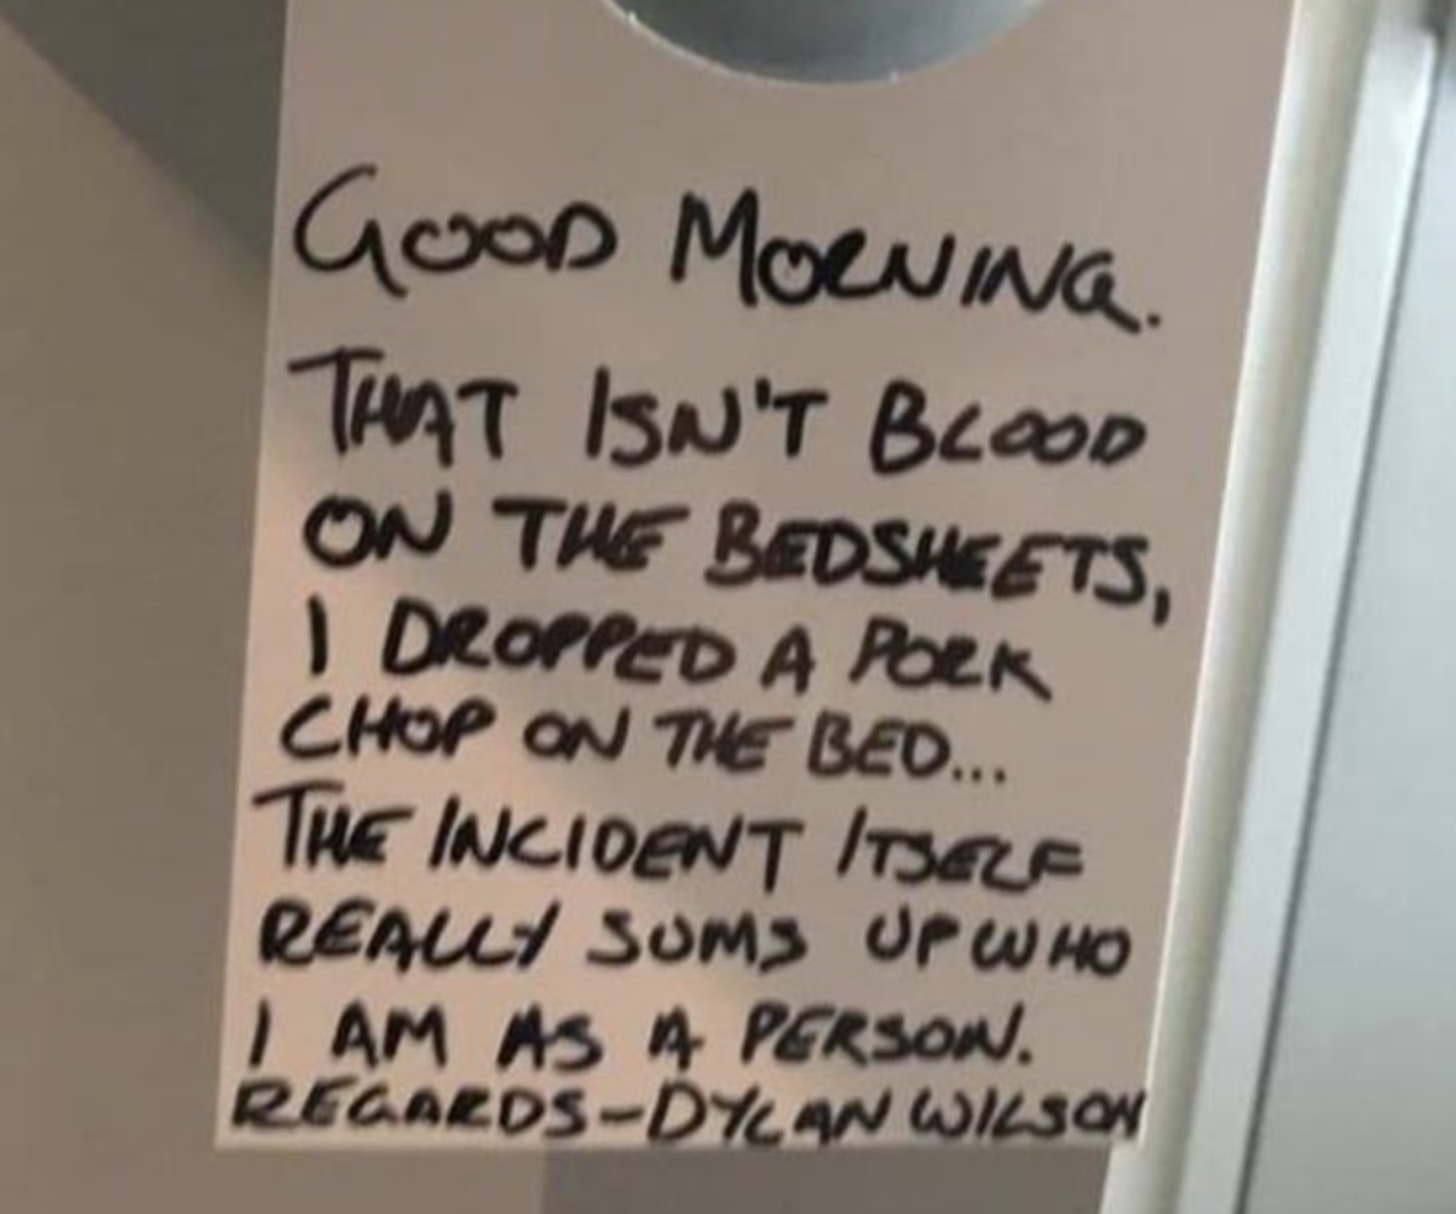 GOOD MORNING.
THAT ISN'T BLOOD
ON THE BEDSHEETS,
I DROPPED A PORK
CHOP ON THE BED...
THE INCIDENT ITSELF
REALLY SUMS UP WHO
I AM AS A PERSON.
REGARDS-DYLAN WILSON